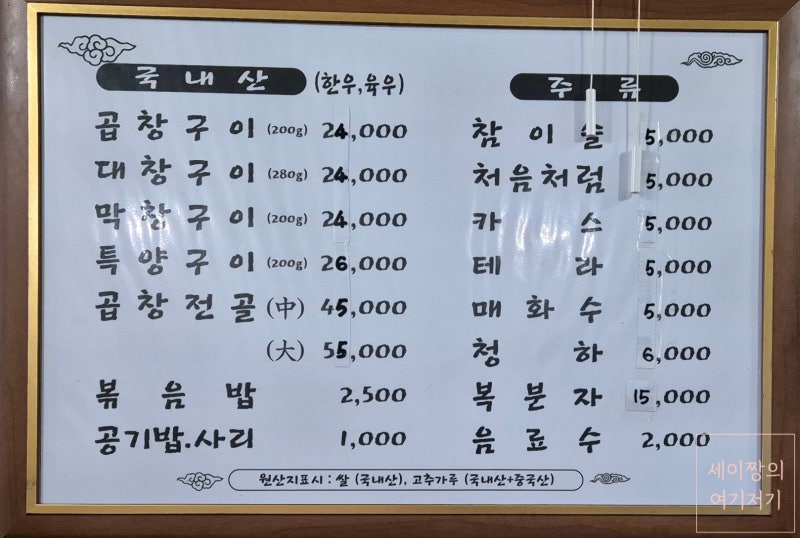 국내산 (한우,육우)
곱창구이 (200g) 24,000
대창구이 (280g) 24,000
막창구이 (200g) 24,000
특양구이 (200g) 26,000
곱창전골 (中) 45,000
(大) 55,000
볶음밥 2,500
공기밥.사리 1,000
주류
참이슬 5,000
처음처럼 5,000
카스 5,000
테라 5,000
매화수 5,000
청하 6,000
복분자 15,000
음료수 2,000
원산지표시 : 쌀 (국내산), 고추가루 (국내산+중국산)
세이짱의
여기저기